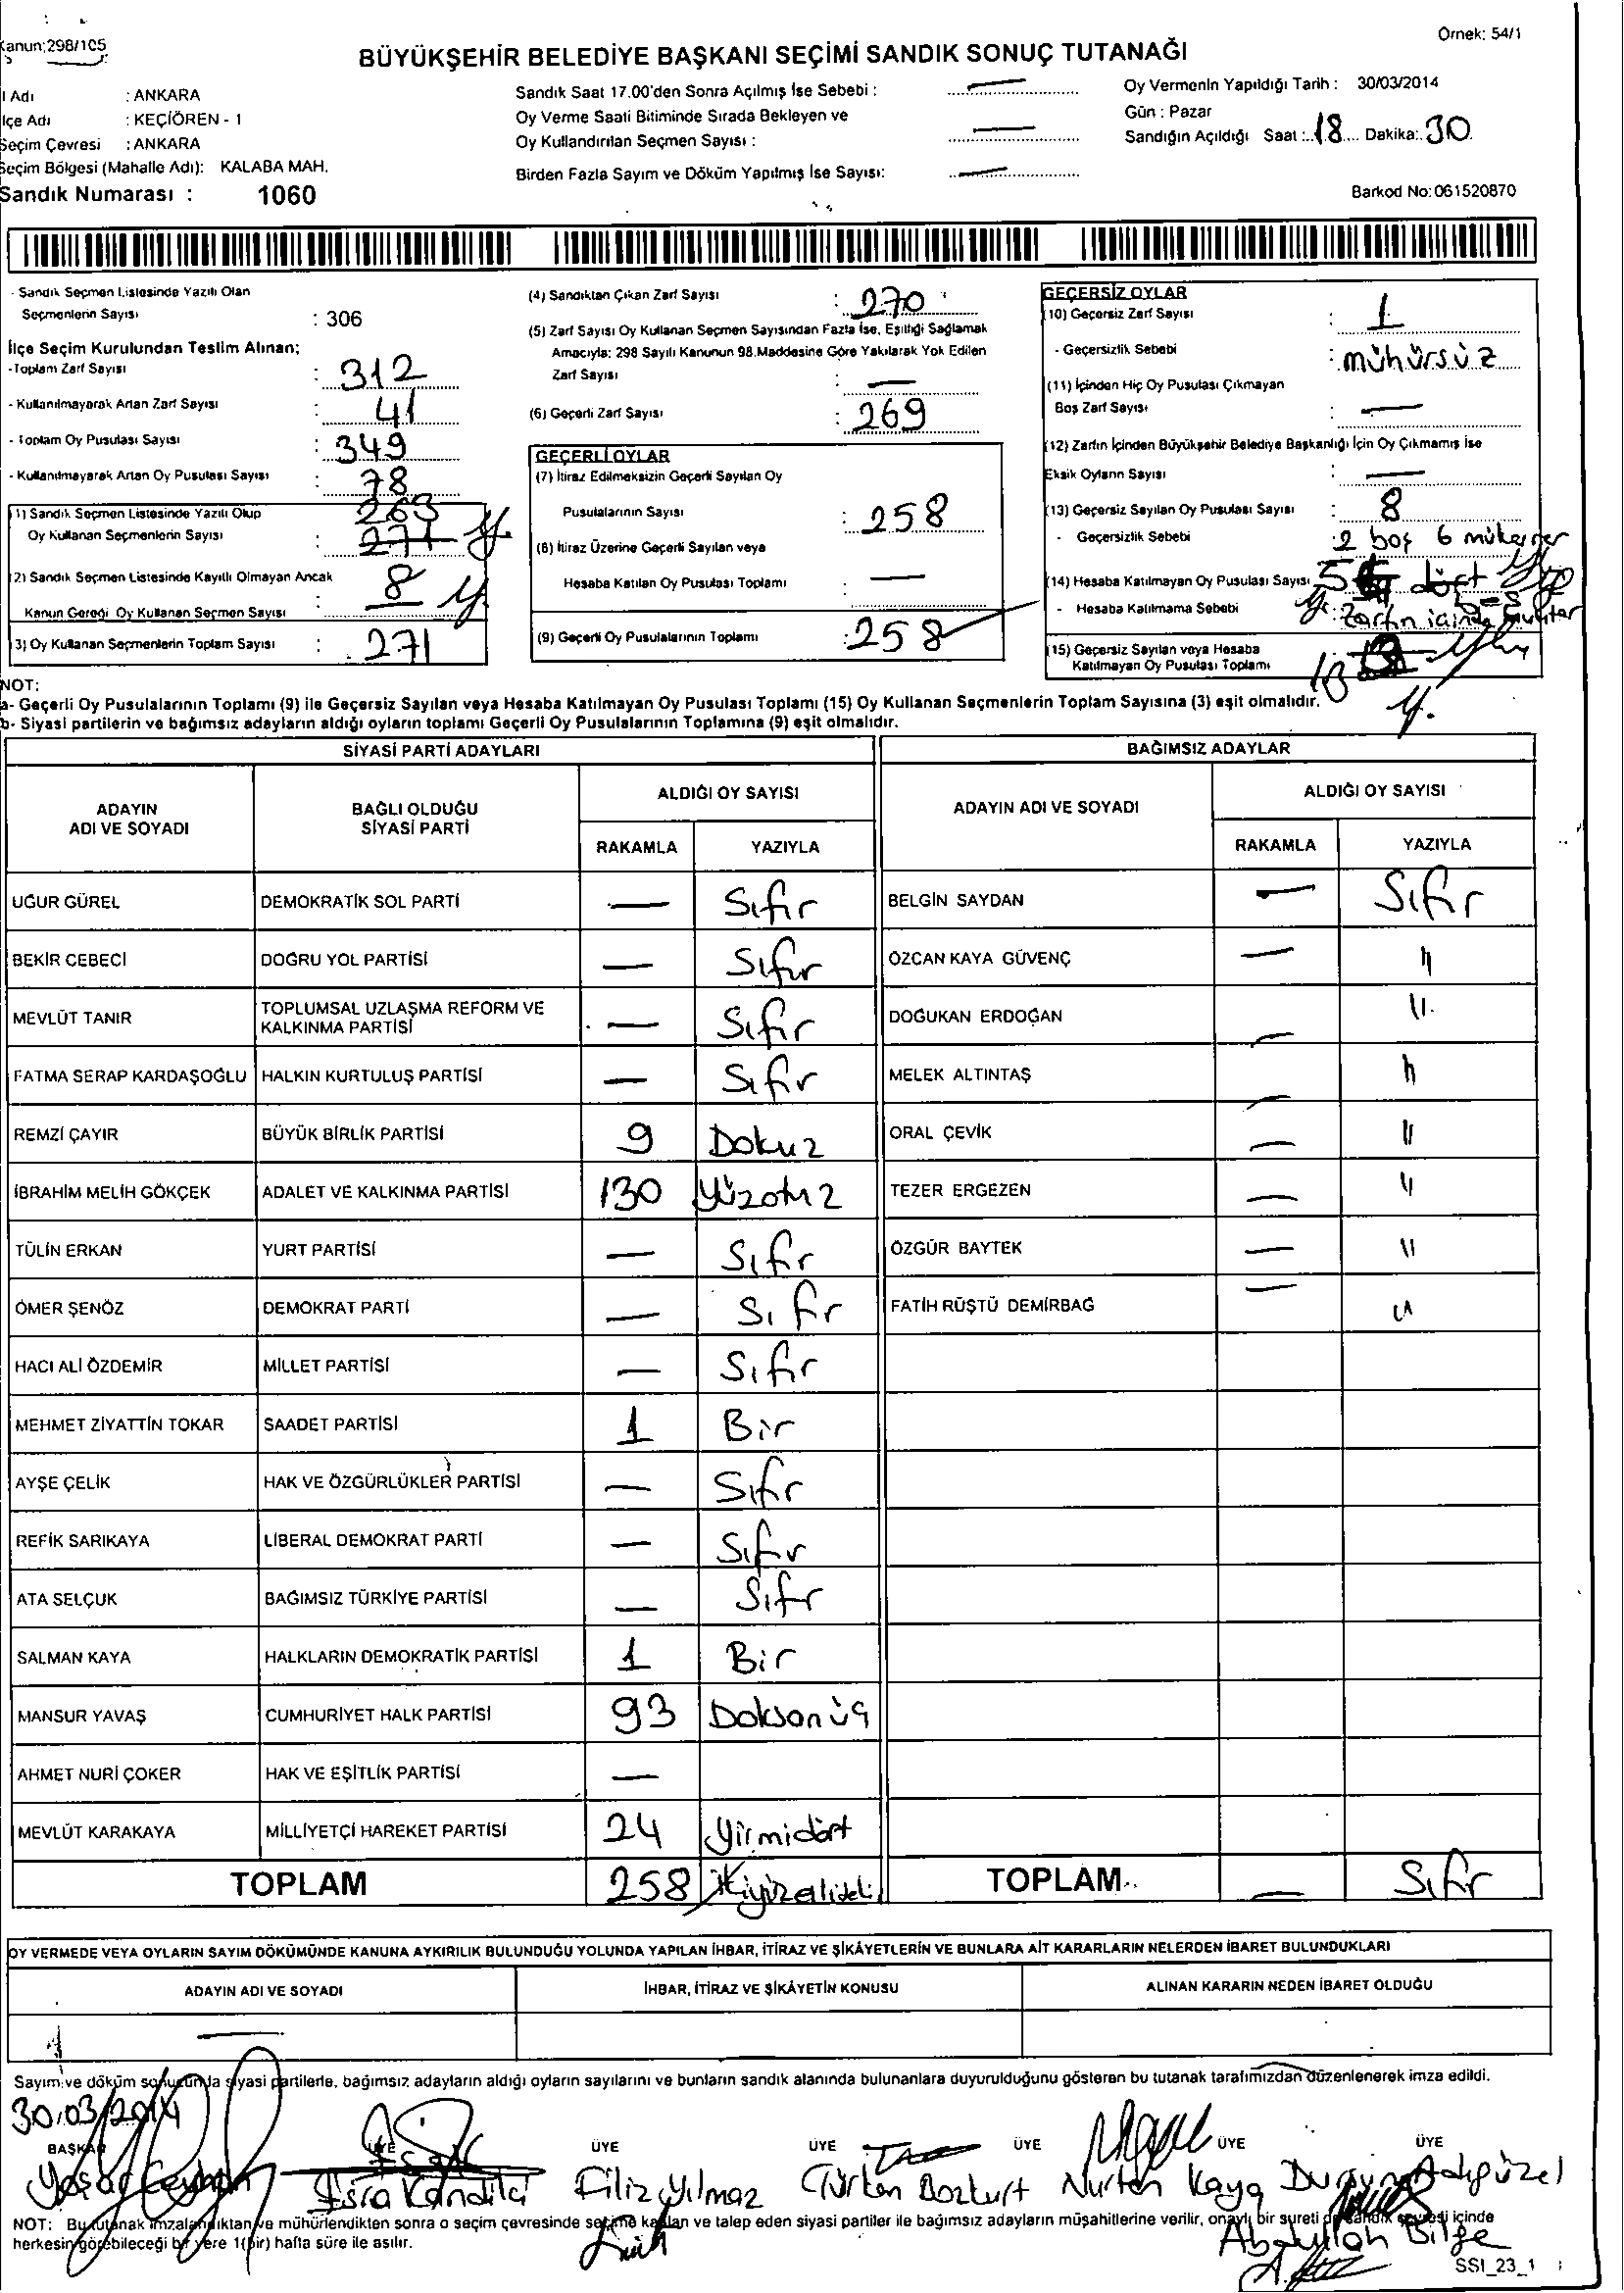 Kanun:298/105
Örnek: 54/1
BÜYÜKŞEHİR BELEDİYE BAŞKANI SEÇİMİ SANDIK SONUÇ TUTANAĞI
l Adı : ANKARA
lçe Adı : KEÇİÖREN - 1
Seçim Çevresi : ANKARA
Seçim Bölgesi (Mahalle Adı): KALABA MAH.
Sandık Numarası : 1060
Sandık Saat 17.00'den Sonra Açılmış İse Sebebi : —
Oy Verme Saati Bitiminde Sırada Bekleyen ve
Oy Kullandırılan Seçmen Sayısı : —
Birden Fazla Sayım ve Döküm Yapılmış İse Sayısı: —
Oy Vermenin Yapıldığı Tarih : 30/03/2014
Gün : Pazar
Sandığın Açıldığı Saat : 18 Dakika: 30
Barkod No: 061520870
- Sandık Seçmen Listesinde Yazılı Olan
Seçmenlerin Sayısı : 306
İlçe Seçim Kurulundan Teslim Alınan;
-Toplam Zarf Sayısı : 312
- Kullanılmayarak Artan Zarf Sayısı : 41
- Toplam Oy Pusulası Sayısı : 349
- Kullanılmayarak Artan Oy Pusulası Sayısı : 78
(1) Sandık Seçmen Listesinde Yazılı Olup 263
Oy Kullanan Seçmenlerin Sayısı : 271
(2) Sandık Seçmen Listesinde Kayıtlı Olmayan Ancak
Kanun Gereği Oy Kullanan Seçmen Sayısı : 8
(3) Oy Kullanan Seçmenlerin Toplam Sayısı : 271
(4) Sandıktan Çıkan Zarf Sayısı : 270
(5) Zarf Sayısı Oy Kullanan Seçmen Sayısından Fazla İse, Eşitliği Sağlamak
Amacıyla: 298 Sayılı Kanunun 98.Maddesine Göre Yakılarak Yok Edilen
Zarf Sayısı : —
(6) Geçerli Zarf Sayısı : 269
GEÇERLİ OYLAR
(7) İtiraz Edilmeksizin Geçerli Sayılan Oy
Pusulalarının Sayısı : 258
(8) İtiraz Üzerine Geçerli Sayılan veya
Hesaba Katılan Oy Pusulası Toplamı : —
(9) Geçerli Oy Pusulalarının Toplamı : 258
GEÇERSİZ OYLAR
(10) Geçersiz Zarf Sayısı : 1
- Geçersizlik Sebebi : mühürsüz
(11) İçinden Hiç Oy Pusulası Çıkmayan
Boş Zarf Sayısı : —
(12) Zarfın İçinden Büyükşehir Belediye Başkanlığı İçin Oy Çıkmamış İse
Eksik Oyların Sayısı : —
(13) Geçersiz Sayılan Oy Pusulası Sayısı : 8
- Geçersizlik Sebebi : 2 boş 6 mükerrer
(14) Hesaba Katılmayan Oy Pusulası Sayısı 5 dört
- Hesaba Katılmama Sebebi : zarfın içinde
(15) Geçersiz Sayılan veya Hesaba
Katılmayan Oy Pusulası Toplamı 13
NOT:
a- Geçerli Oy Pusulalarının Toplamı (9) ile Geçersiz Sayılan veya Hesaba Katılmayan Oy Pusulası Toplamı (15) Oy Kullanan Seçmenlerin Toplam Sayısına (3) eşit olmalıdır.
b- Siyasi partilerin ve bağımsız adayların aldığı oyların toplamı Geçerli Oy Pusulalarının Toplamına (9) eşit olmalıdır.
SİYASİ PARTİ ADAYLARI
BAĞIMSIZ ADAYLAR
ADAYIN
ADI VE SOYADI
BAĞLI OLDUĞU
SİYASİ PARTİ
ALDIĞI OY SAYISI
RAKAMLA YAZIYLA
ADAYIN ADI VE SOYADI
ALDIĞI OY SAYISI
RAKAMLA YAZIYLA
UĞUR GÜREL DEMOKRATİK SOL PARTİ — Sıfır BELGİN SAYDAN — Sıfır
BEKİR CEBECİ DOĞRU YOL PARTİSİ — Sıfır ÖZCAN KAYA GÜVENÇ — "
MEVLÜT TANIR TOPLUMSAL UZLAŞMA REFORM VE KALKINMA PARTİSİ — Sıfır DOĞUKAN ERDOĞAN — "
FATMA SERAP KARDAŞOĞLU HALKIN KURTULUŞ PARTİSİ — Sıfır MELEK ALTINTAŞ — "
REMZİ ÇAYIR BÜYÜK BİRLİK PARTİSİ 9 Dokuz ORAL ÇEVİK — "
İBRAHİM MELİH GÖKÇEK ADALET VE KALKINMA PARTİSİ 130 Yüzotuz TEZER ERGEZEN — "
TÜLİN ERKAN YURT PARTİSİ — Sıfır ÖZGÜR BAYTEK — "
ÖMER ŞENÖZ DEMOKRAT PARTİ — Sıfır FATİH RÜŞTÜ DEMİRBAĞ — "
HACI ALİ ÖZDEMİR MİLLET PARTİSİ — Sıfır
MEHMET ZİYATTİN TOKAR SAADET PARTİSİ 1 Bir
AYŞE ÇELİK HAK VE ÖZGÜRLÜKLER PARTİSİ — Sıfır
REFİK SARIKAYA LİBERAL DEMOKRAT PARTİ — Sıfır
ATA SELÇUK BAĞIMSIZ TÜRKİYE PARTİSİ — Sıfır
SALMAN KAYA HALKLARIN DEMOKRATİK PARTİSİ 1 Bir
MANSUR YAVAŞ CUMHURİYET HALK PARTİSİ 93 Doksanüç
AHMET NURİ ÇOKER HAK VE EŞİTLİK PARTİSİ —
MEVLÜT KARAKAYA MİLLİYETÇİ HAREKET PARTİSİ 24 Yirmidört
TOPLAM 258 TOPLAM — Sıfır
OY VERMEDE VEYA OYLARIN SAYIM DÖKÜMÜNDE KANUNA AYKIRILIK BULUNDUĞU YOLUNDA YAPILAN İHBAR, İTİRAZ VE ŞİKÂYETLERİN VE BUNLARA AİT KARARLARIN NELERDEN İBARET BULUNDUKLARI
ADAYIN ADI VE SOYADI İHBAR, İTİRAZ VE ŞİKÂYETİN KONUSU ALINAN KARARIN NEDEN İBARET OLDUĞU
—
Sayım ve döküm sonucunda siyasi partilerle, bağımsız adayların aldığı oyların sayılarını ve bunların sandık alanında bulunanlara duyurulduğunu gösteren bu tutanak tarafımızdan düzenlenerek imza edildi.
30.03.2014
BAŞKAN ÜYE ÜYE ÜYE ÜYE ÜYE ÜYE
Yaşar Ceyhan Esra Kandilci Filiz Yılmaz Türkan Bozkurt Nurten Kaya Dursun Adıgüzel
Abdullah Bilge
NOT: Bu tutanak imzalandıktan ve mühürlendikten sonra o seçim çevresinde seçime katılan ve talep eden siyasi partiler ile bağımsız adayların müşahitlerine verilir, onaylı bir sureti de sandık çevresi içinde
herkesin görebileceği bir yere 1(bir) hafta süre ile asılır.
SSI_23_1